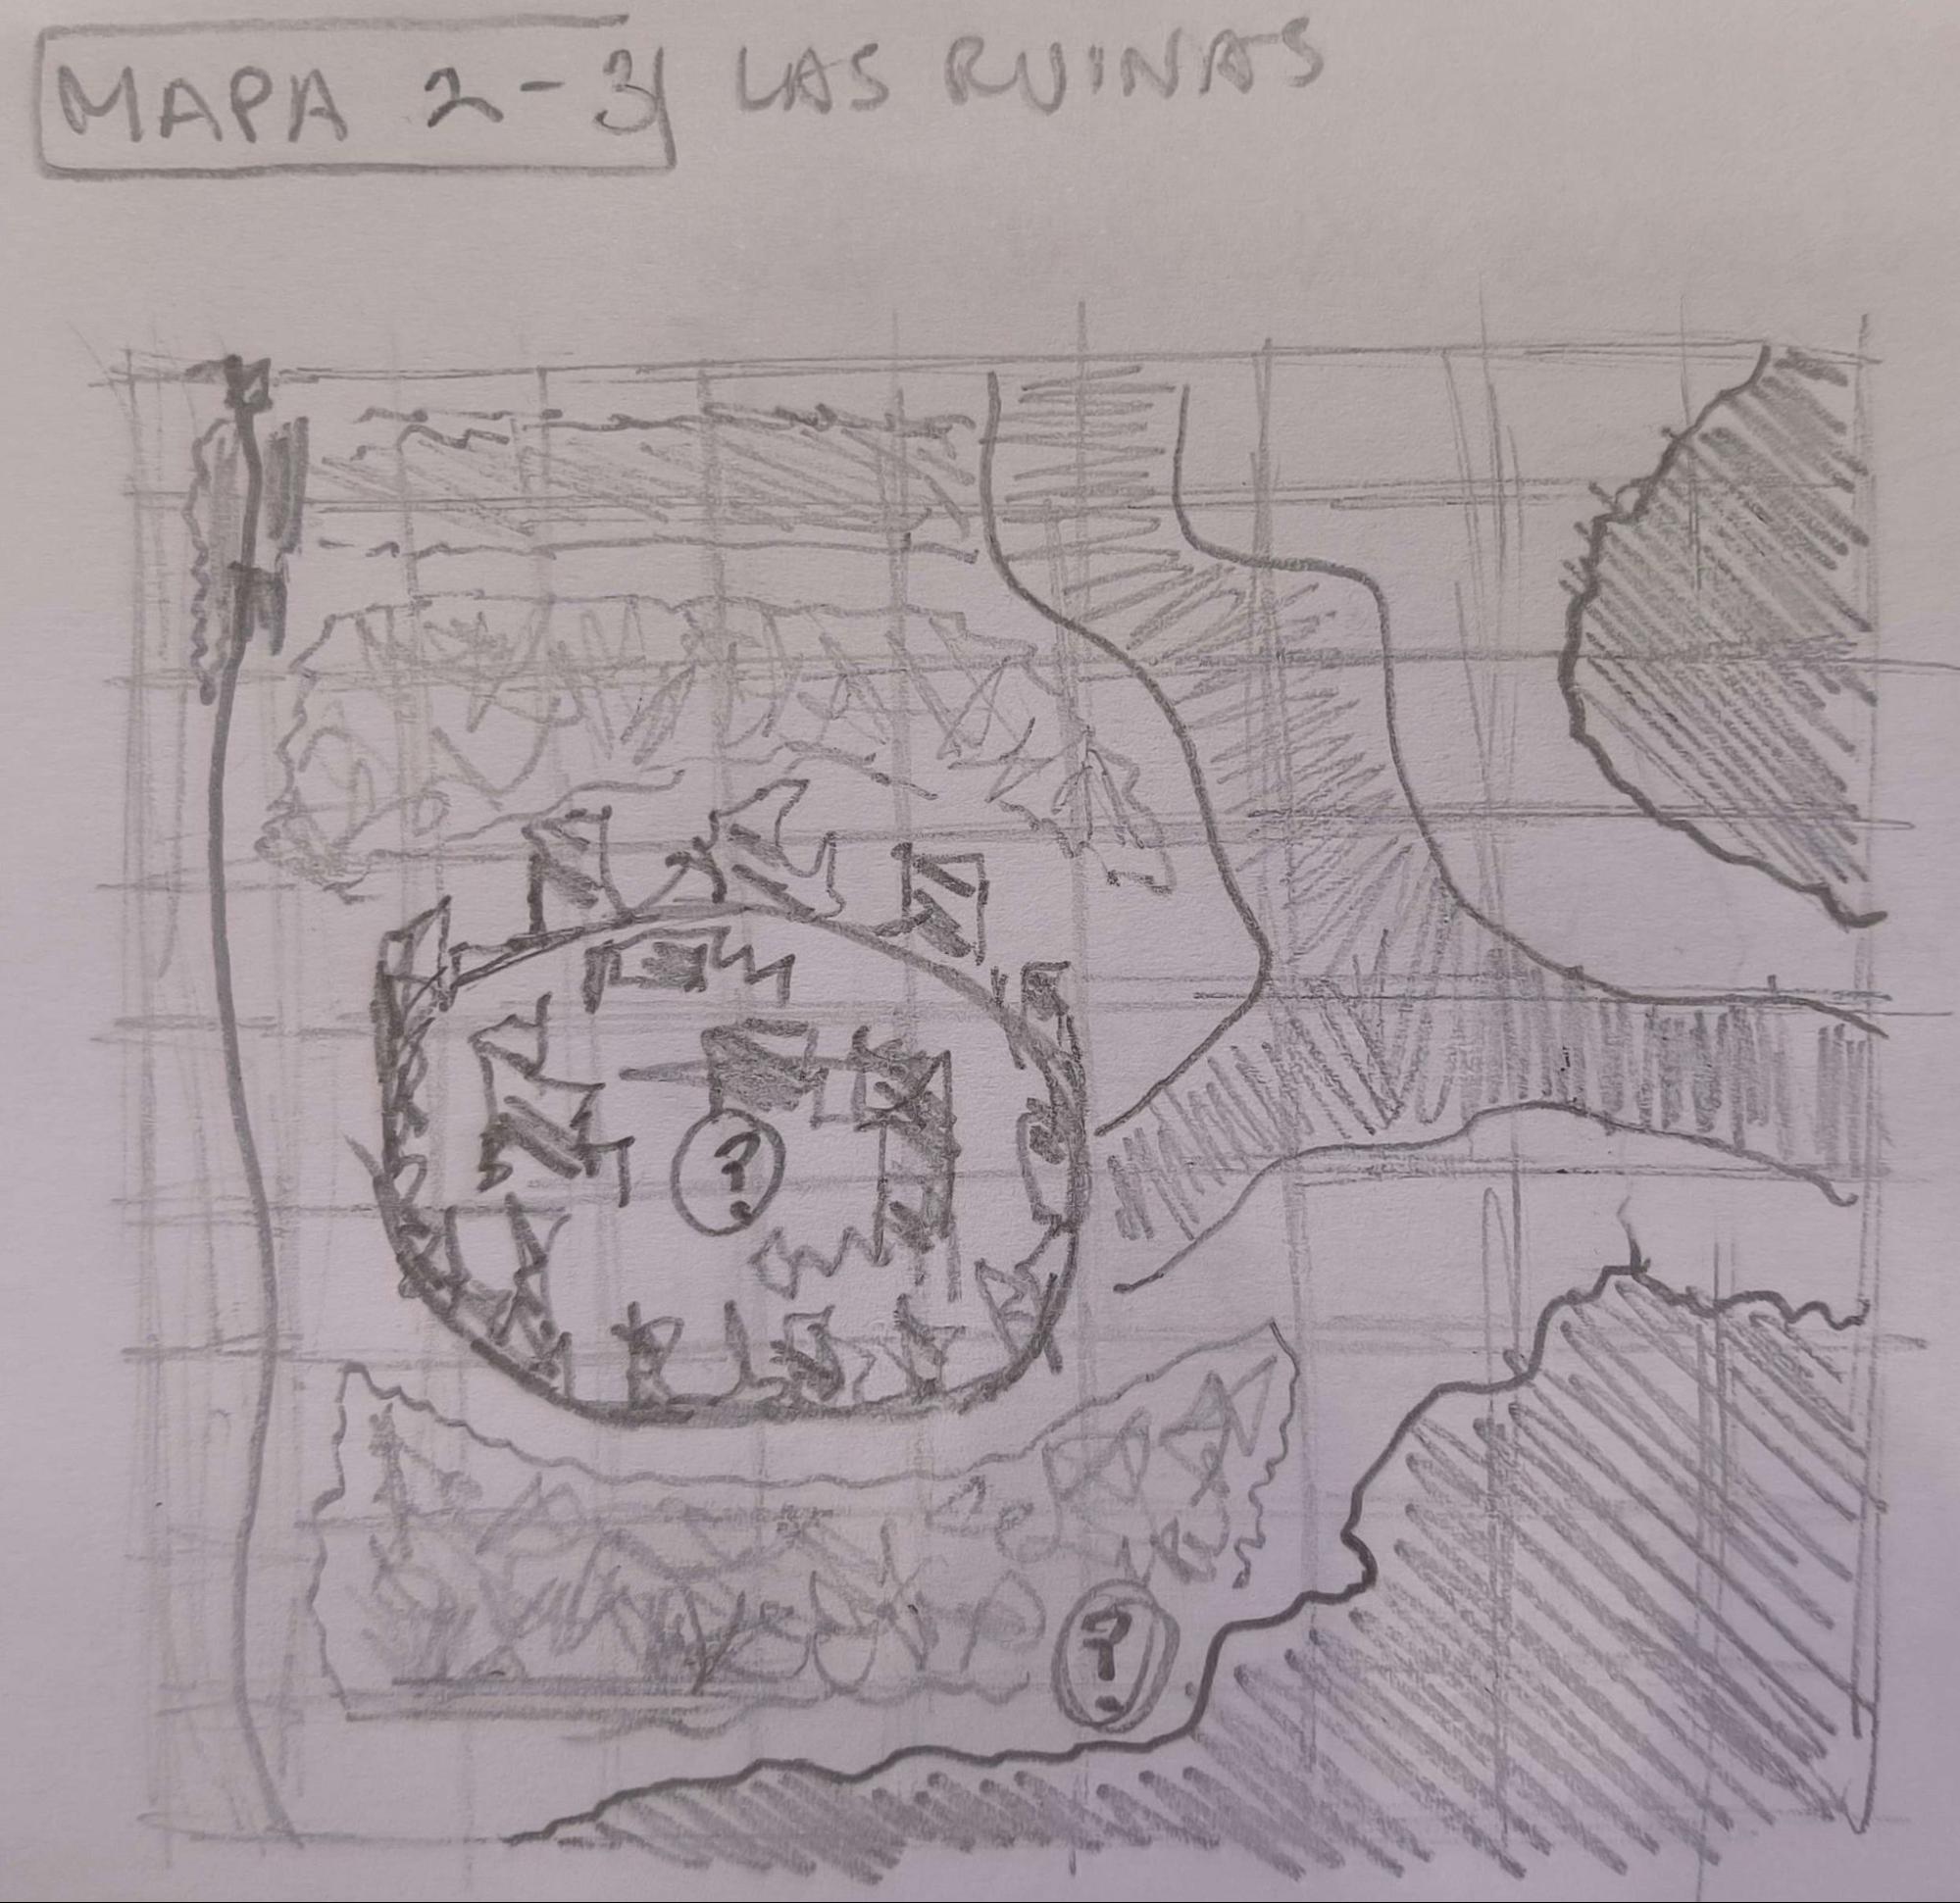 MAPA 2-3 LAS RUINAS
?
?